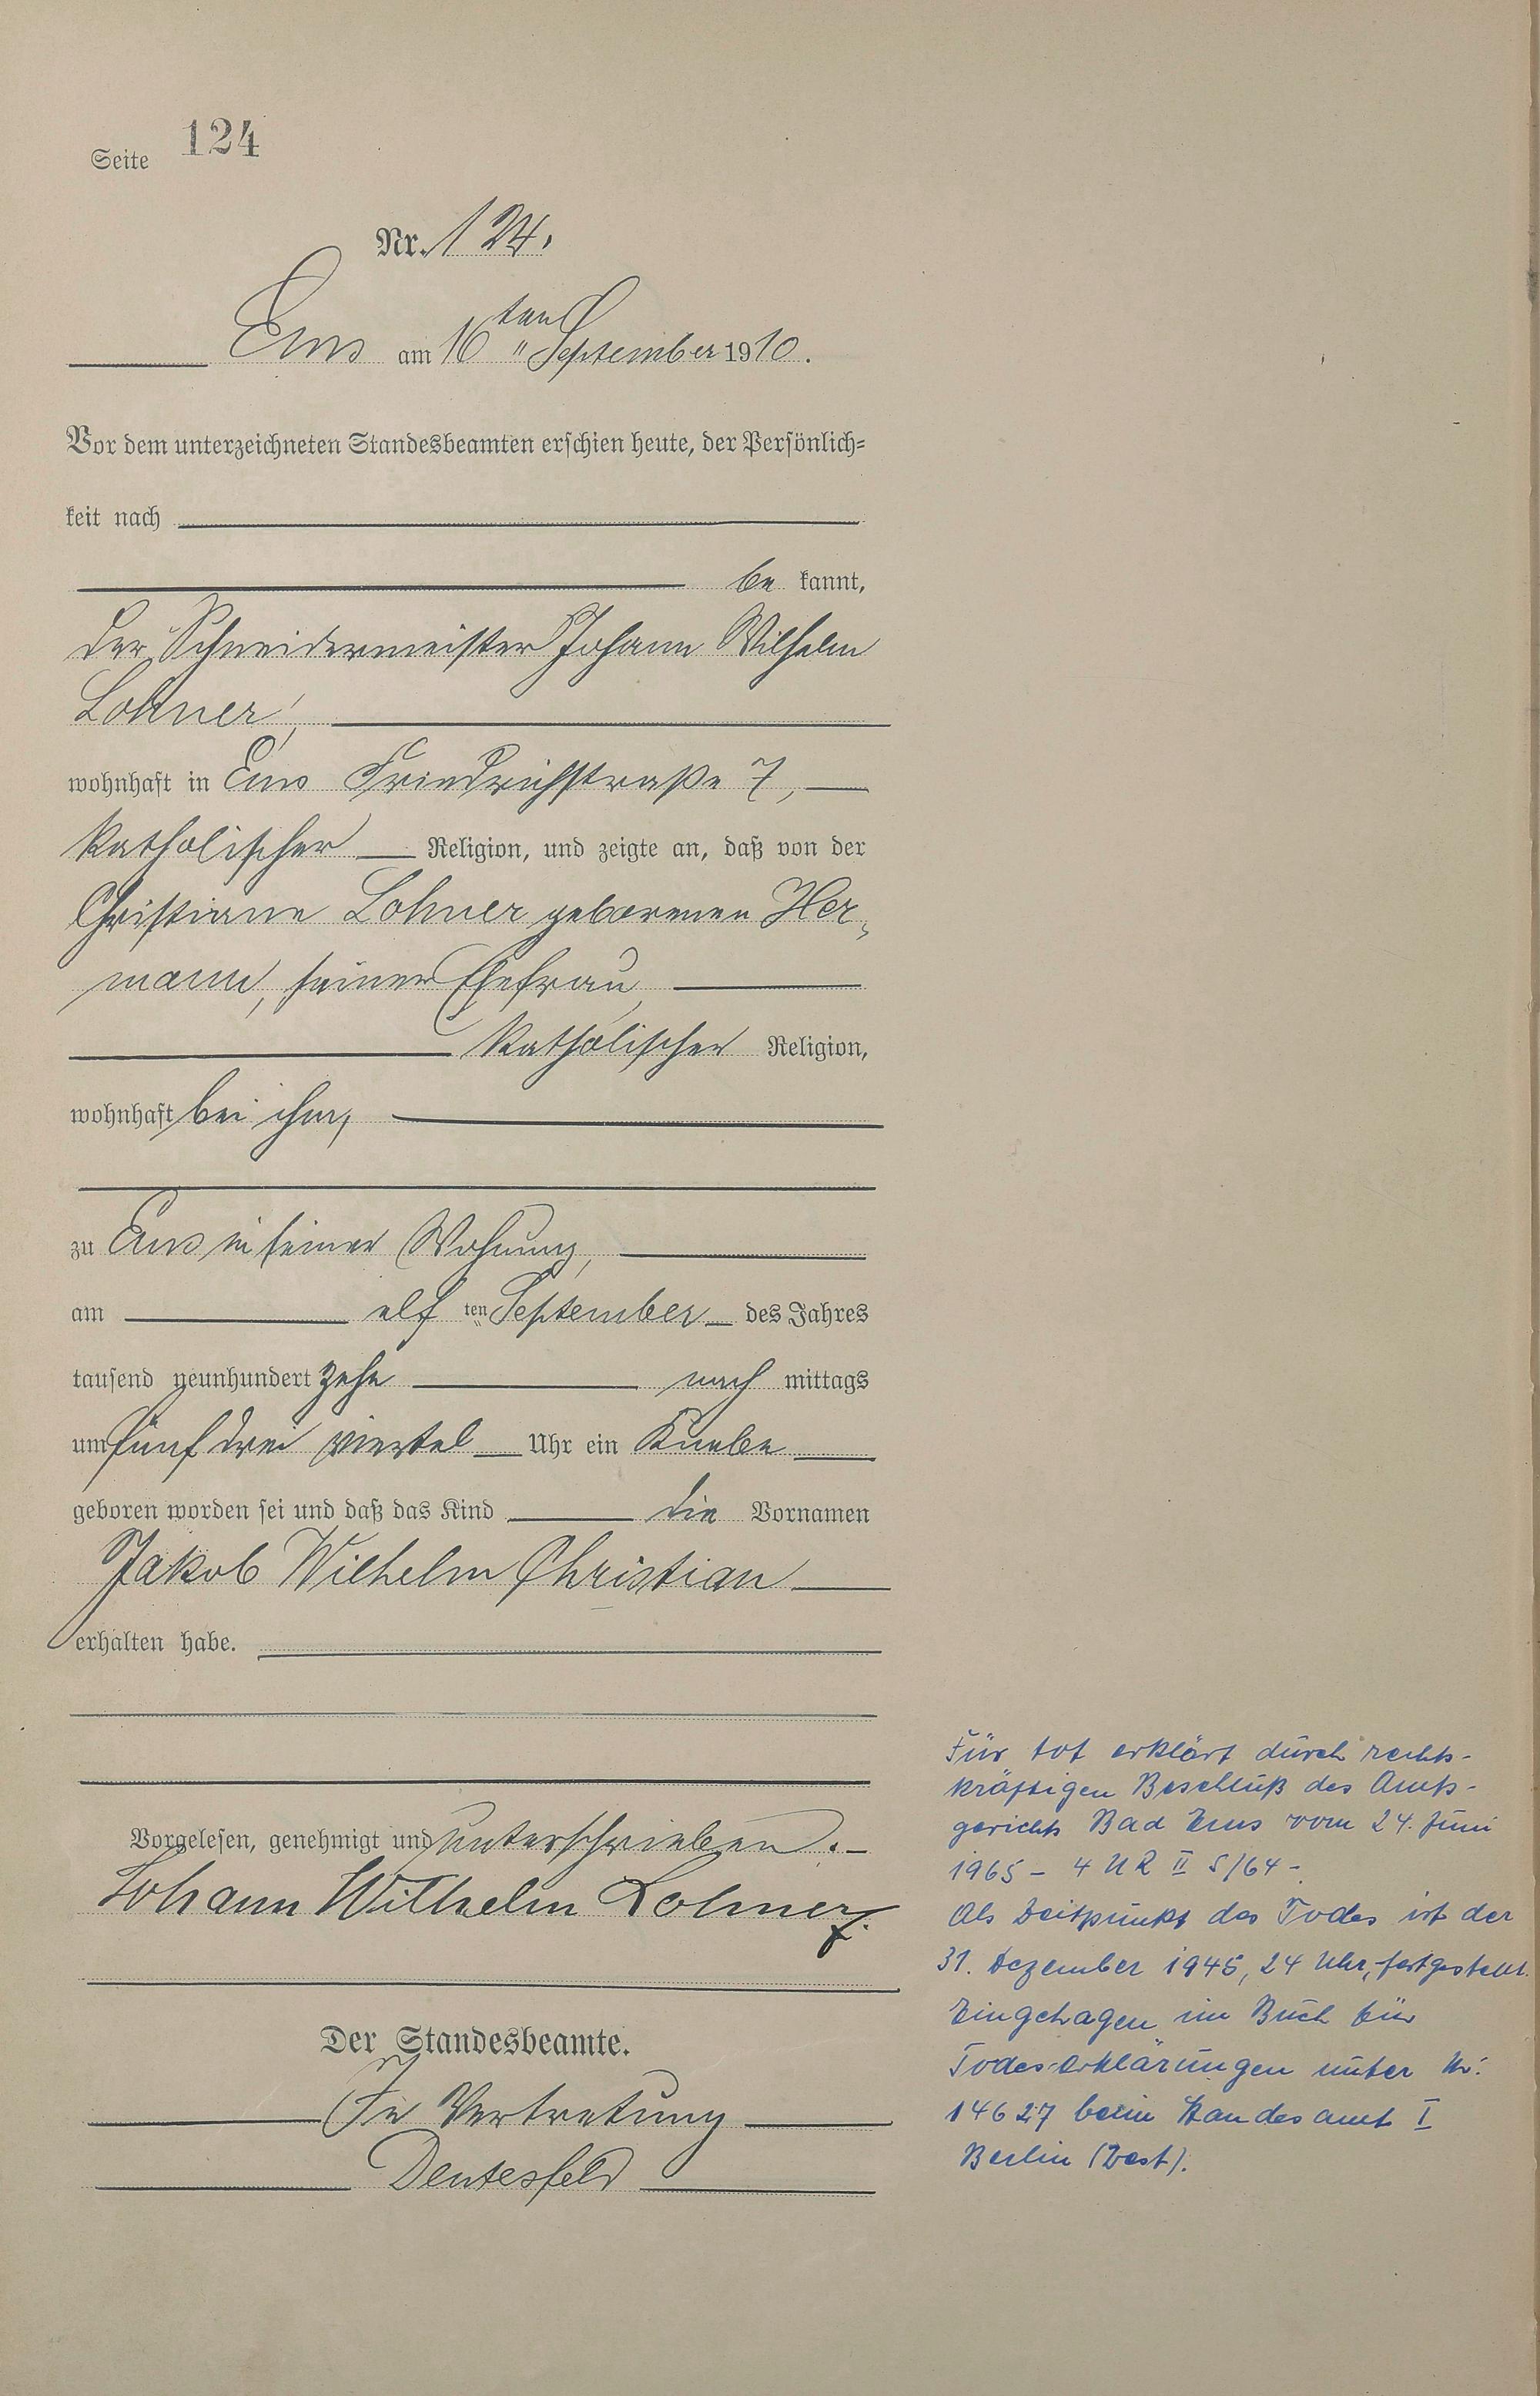 Seite 124
Nr. 124.
Ems am 16ten September 1910.
Vor dem unterzeichneten Standesbeamten erschien heute, der Persönlich-
keit nach
be kannt,
der Schneidermeister Johann Wilhelm
Lohner,
wohnhaft in Ems Friedrichstraße 7,
katholischer Religion, und zeigte an, daß von der
Christiane Lohner geborenen Her-
mann, seiner Ehefrau,
katholischer Religion,
wohnhaft bei ihm,
zu Ems in seiner Wohnung,
am elf ten September des Jahres
tausend neunhundert zehn nach mittags
um fünf drei viertel Uhr ein Knabe
geboren worden sei und daß das Kind die Vornamen
Jakob Wilhelm Christian
erhalten habe.
Vorgelesen, genehmigt und unterschrieben.
Johann Wilhelm Lohner
Der Standesbeamte.
In Vertretung
Für tot erklärt durch rechts-
kräftigen Beschluß des Amts-
gerichts Bad Ems vom 24. Juni
1965 - 4 UR II 5/64 -.
Als Zeitpunkt des Todes ist der
31. Dezember 1945, 24 Uhr, festgestellt.
Eingetragen im Buch für
Todeserklärungen unter Nr.
14627 beim Standesamt I
Berlin (West).